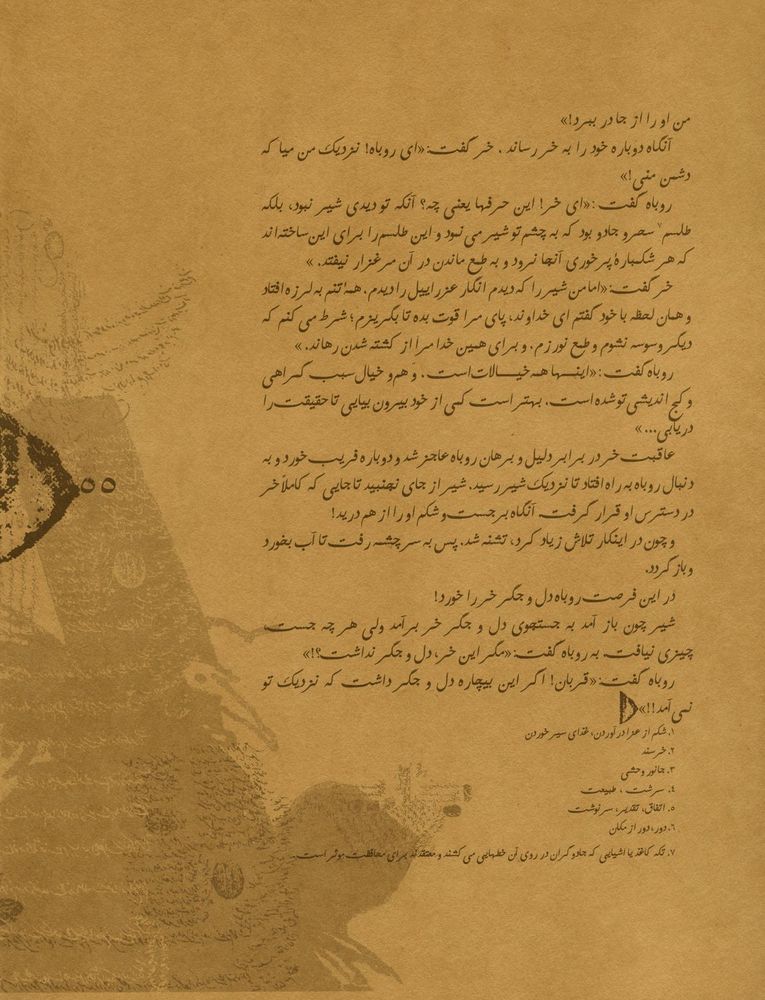 من او را از جا در ببرد!»
آنگاه دوباره خود را به خر رساند. خر گفت: «ای روباه! نزدیک من میا که
دشمن منی!»
روباه گفت: «ای خر! این حرفها یعنی چه؟ آنکه تو دیدی شیر نبود، بلکه
طلسم۷ سحر و جادو بود که به چشم تو شیر می نمود و این طلسم را برای این ساخته‌اند
که هر شکمبارهٔ پرخوری آنجا نرود و به طمع ماندن در آن مرغزار نیفتد.»
خر گفت: «اما من شیر را که دیدم انگار عزراییل را دیدم. همهٔ تنم به لرزه افتاد
و همان لحظه با خود گفتم ای خداوند، پای مرا قوت بده تا بگریزم؛ شرط می کنم که
دیگر وسوسه نشوم و طمع نورزم. و برای همین خدا مرا از کشته شدن رهاند.»
روباه گفت: «اینها همه خیالات است. وهم و خیال سبب گمراهی
و کج اندیشی تو شده است. بهتر است کمی از خود بیرون بیایی تا حقیقت را
دریابی...»
عاقبت خر در برابر دلیل و برهان روباه عاجز شد و دوباره فریب خورد و به
دنبال روباه به راه افتاد تا نزدیک شیر رسید. شیر از جای نجنبید تا جایی که کاملاً خر
در دسترس او قرار گرفت. آنگاه برجست و شکم او را از هم درید!
و چون در اینکار تلاش زیاد کرد، تشنه شد. پس به سر چشمه رفت تا آب بخورد
و باز گردد.
در این فرصت روباه دل و جگر خر را خورد!
شیر چون باز آمد به جستجوی دل و جگر خر برآمد ولی هر چه جست،
چیزی نیافت. به روباه گفت: «مگر این خر، دل و جگر نداشت؟!»
روباه گفت: «قربان! اگر این بیچاره دل و جگر داشت که نزدیک تو
نمی آمد!!»
۱. شکم از عزا در آوردن، غذای سیر خوردن
۲. خرسند
۳. جانور وحشی
۴. سرشت، طبیعت
۵. اتفاق، تقدیر، سرنوشت
۶. دور، دور از مکان
۷. تکه کاغذ یا اشیایی که جادوگران در روی آن خطهایی می کشند و معتقدند برای محافظت موثر است.
۵۵